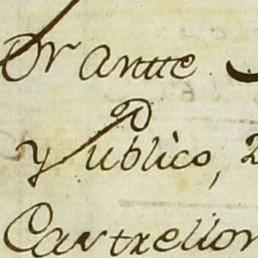 Orantte
y Publico,
Castrellon